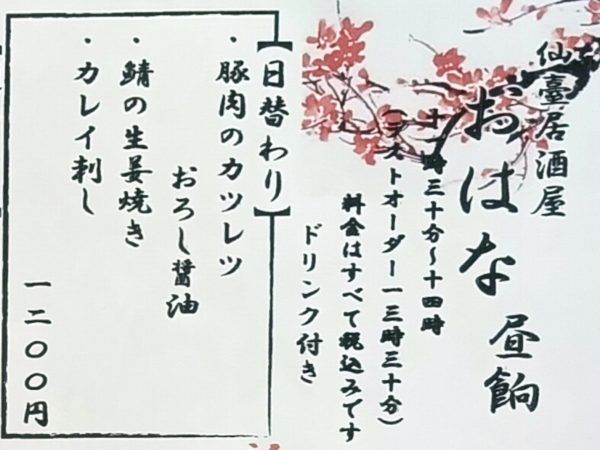 仙臺居酒屋
おはな 昼餉
十一時三十分〜十四時
(ラストオーダー一三時三十分)
料金はすべて税込みです
ドリンク付き
【日替わり】
・豚肉のカツレツ
おろし醤油
・鯖の生姜焼き
・カレイ刺し
一二〇〇円